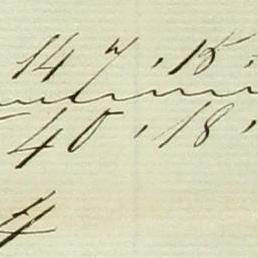 147.15.
40.18.
4